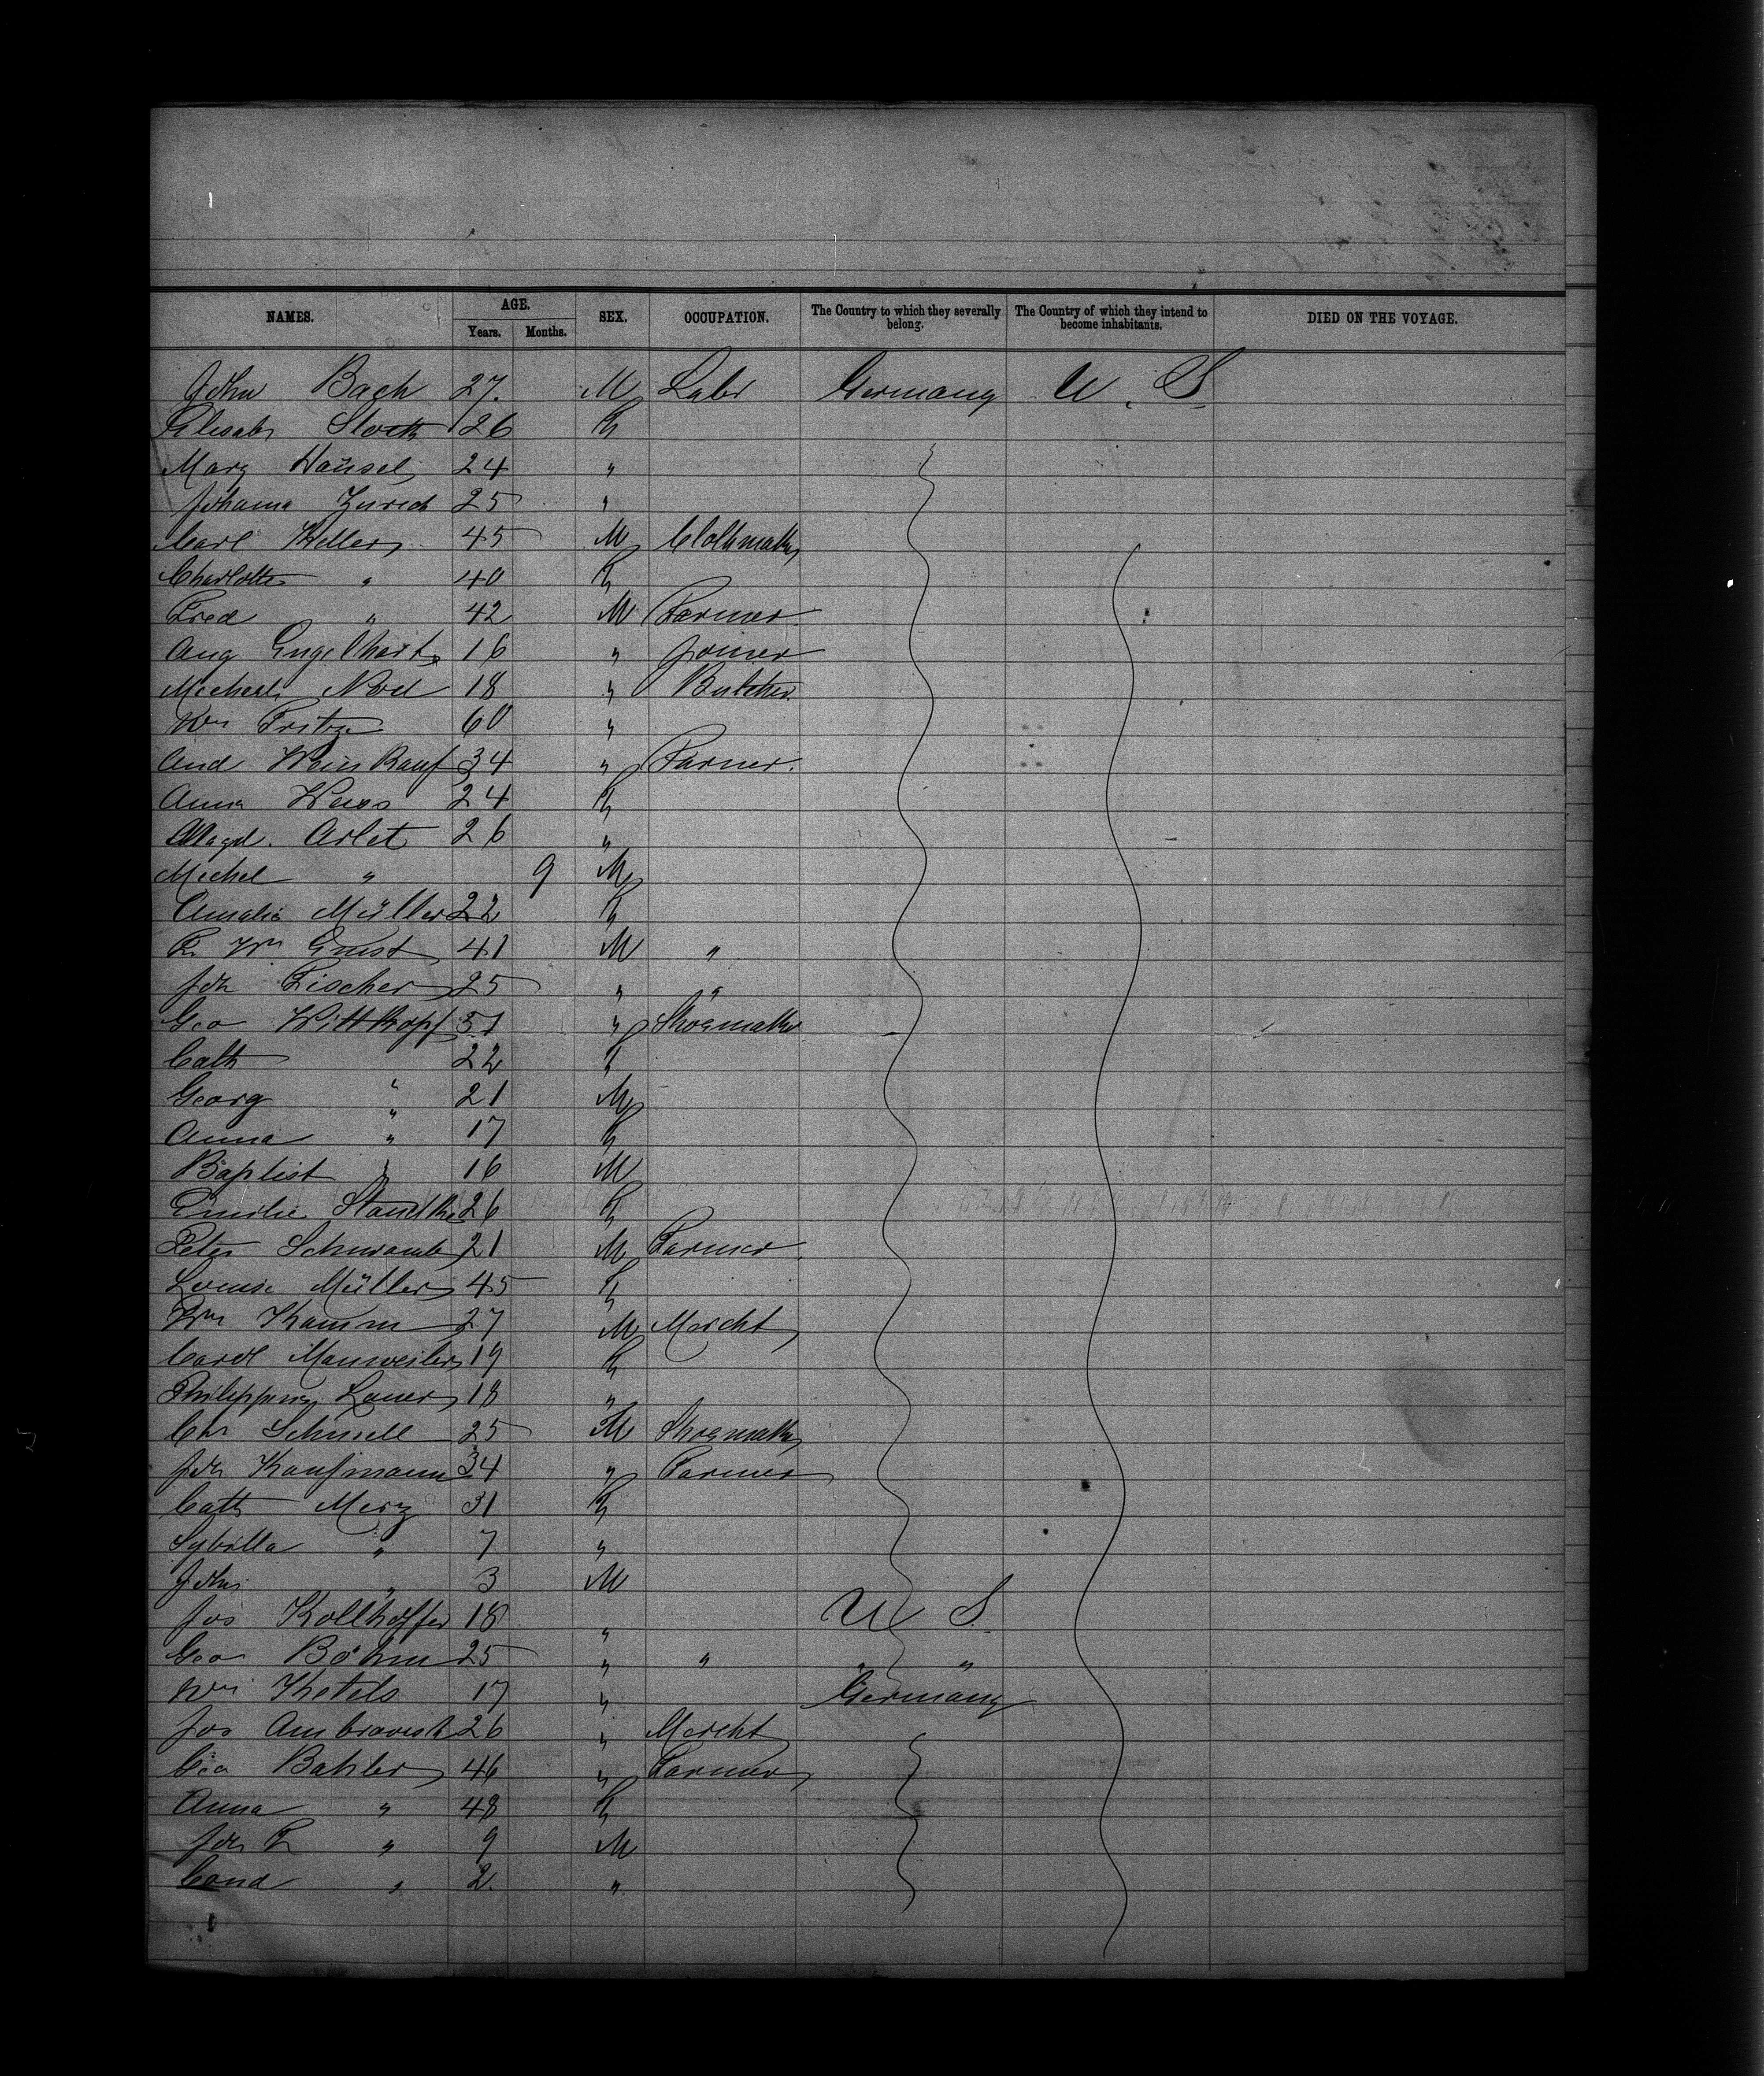 NAMES. AGE. SEX. OCCUPATION. The Country to which they severally belong. The Country of which they intend to become inhabitants. DIED ON THE VOYAGE.
Years. Months.
John Bach 27. M Labr Germany U. S.
Elisab Slock 26 F
Marg Haüsel 24 "
Johanna Zurich 25 "
Carl Heller 45 M Clothmakr
Charlotte " 40 F
Fred " 42 M Farmer
Aug Engelhart 16 " Joiner
Michael Noel 18 " Butcher
Wm Fritze 60 "
And Weinkauf 34 " Farmer.
Anna Weiss 24 F
Magd. Arlet 26 "
Michel " 9 M
Amalia Müller 22 F
F. Wm Ernst 41 M "
Joh Fischer 25 " "
Geo Wittkopf 51 " Shoemakr
Cath " 22 F
Georg " 21 M
Anna " 17 F
Baptist " 16 M
Emilie Standke 26 F
Peter Schwamb 21 M Farmer
Louise Müller 45 F
Wm Kamm 27 M Mercht
Carol Manweiler 19 F
Philippine Lauer 18 "
Chr Schnell 25 M Shoemakr
Joh Kaufmann 34 " Farmer
Cath Merz 31 F
Sybilla " 7 "
John " 3 M
Jos Kollhoffer 18 " U S.
Geo Böhm 25 " " " "
Wm Ketels 17 " Germany
Jos 26 " Mercht
Geo Bahler 46 " Farmer
Anna " 48 F
Joh F " 9 M
Cond " 2. "